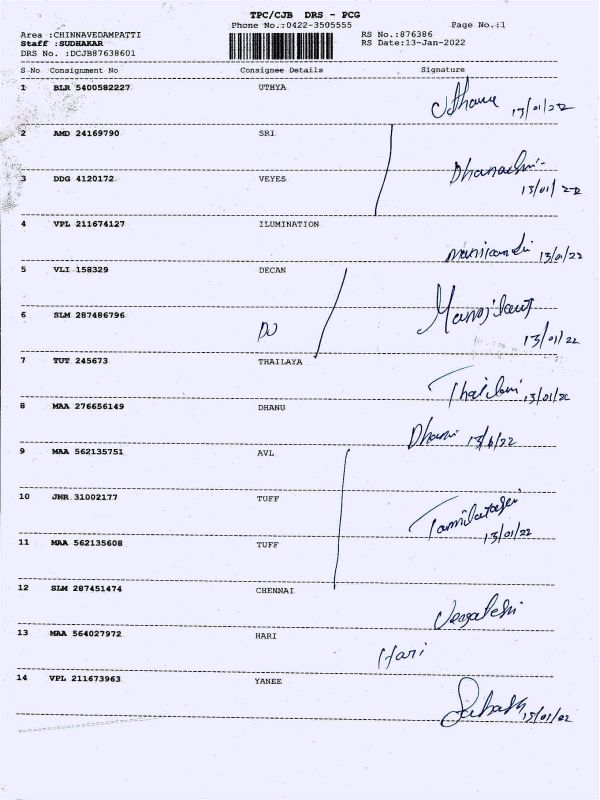 TPC/CJB DRS - PCG
Phone No.:0422-3505555 Page No.:1
Area :CHINNAVEDAMPATTI RS No.:876386
Staff :SUDHAKAR RS Date:13-Jan-2022
DRS No. :DCJB87638601
S No Consignment No Consignee Details Signature
1 BLR 5400582227 UTHYA
13/01/22
2 AMD 24169790 SRI
3 DDG 4120172 VEYES
13/01/22
4 VPL 211674127 ILUMINATION
13/01/22
5 VLI 158329 DECAN
6 SLM 287486796
13/01/22
7 TUT 245673 THAILAYA
13/01/22
8 MAA 276656149 DHANU
9 MAA 562135751 AVL
10 JNR 31002177 TUFF
13/01/22
11 MAA 562135608 TUFF
12 SLM 287451474 CHENNAI
13 MAA 564027972 HARI
Hari
14 VPL 211673963 YANEE